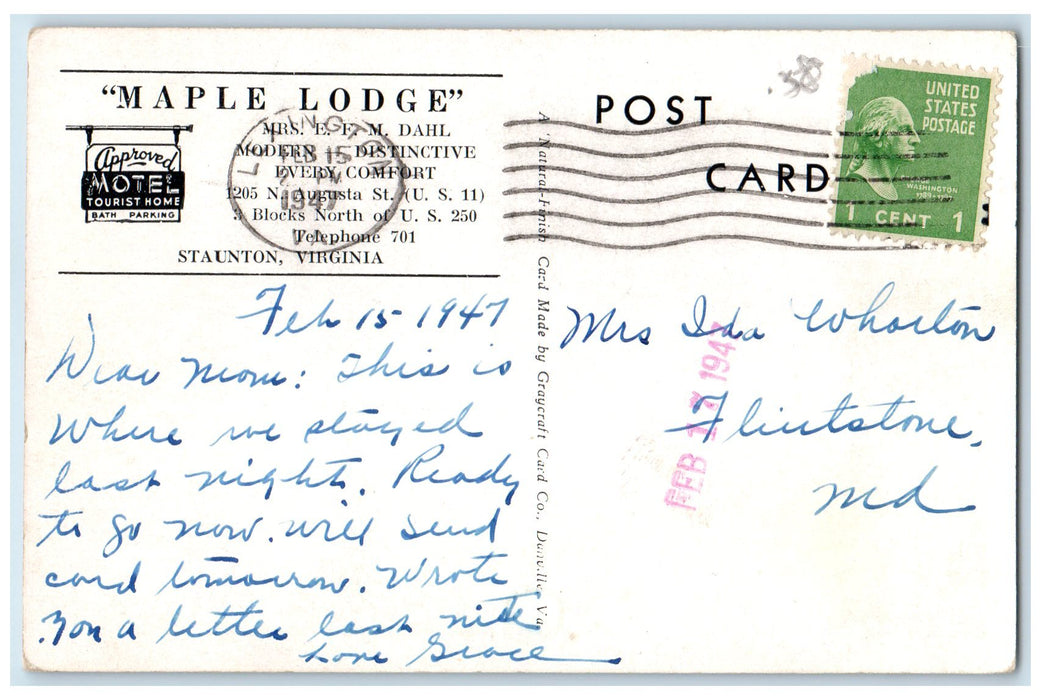 "MAPLE LODGE"
Approved
MOTEL
TOURIST HOME
BATH PARKING
MRS. E. F. M. DAHL
MODERN — DISTINCTIVE
EVERY COMFORT
1205 N. Augusta St. (U. S. 11)
3 Blocks North of U. S. 250
Telephone 701
STAUNTON, VIRGINIA
FEB 15
1947
VA
POST
CARD
.58
UNITED
STATES
POSTAGE
WASHINGTON
1 CENT 1
A Natural-Finish Card Made by Graycraft Card Co., Danville, Va.
Feb 15-1947
Dear Mom: This is
where we stayed
last night. Ready
to go now. will send
card tomorrow. Wrote
you a letter last nite
Love Grace
Mrs Ida Wharton
Flintstone,
Md
FEB 17 194